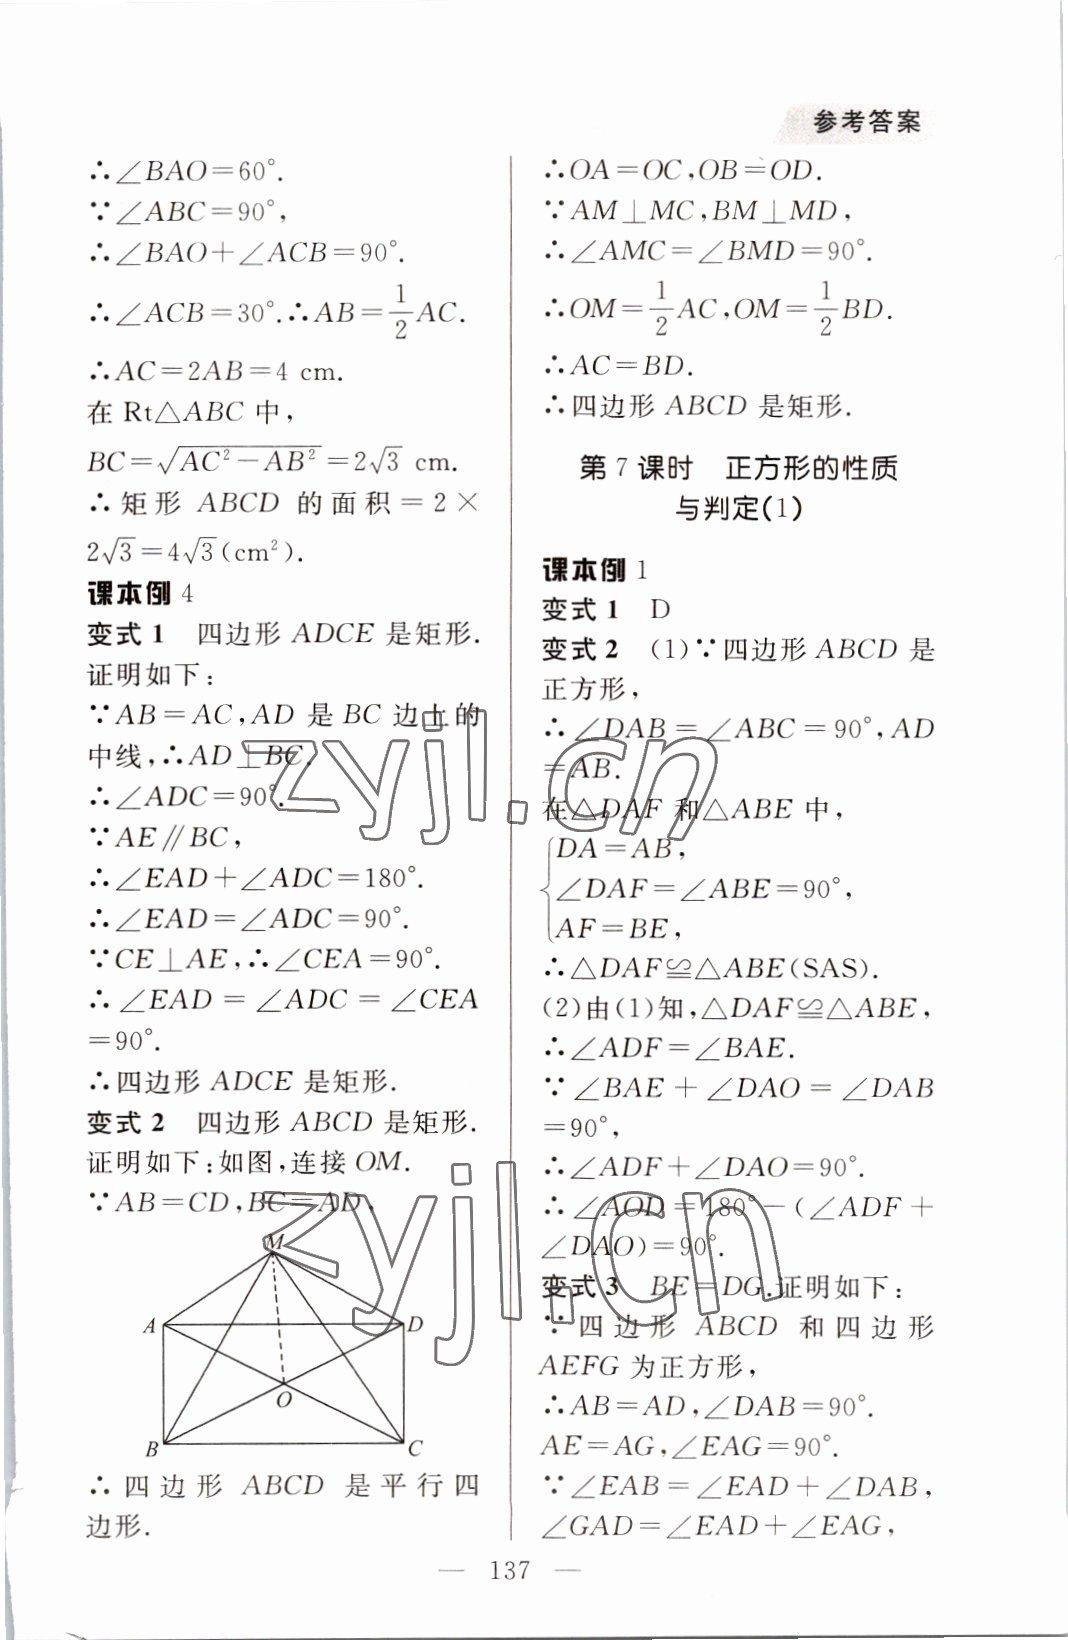 参考答案
∴∠BAO=60°.
∵∠ABC=90°,
∴∠BAO+∠ACB=90°.
∴∠ACB=30°.∴AB=1/2AC.
∴AC=2AB=4 cm.
在 Rt△ABC 中,
BC=√(AC²-AB²)=2√3 cm.
∴矩形 ABCD 的面积=2×
2√3=4√3(cm²).
课本例 4
变式 1 四边形 ADCE 是矩形.
证明如下:
∵AB=AC,AD 是 BC 边上的
中线,∴AD⊥BC.
∴∠ADC=90°.
∵AE∥BC,
∴∠EAD+∠ADC=180°.
∴∠EAD=∠ADC=90°.
∵CE⊥AE,∴∠CEA=90°.
∴∠EAD=∠ADC=∠CEA
=90°.
∴四边形 ADCE 是矩形.
变式 2 四边形 ABCD 是矩形.
证明如下:如图,连接 OM.
∵AB=CD,BC=AD,
M
A
D
O
B
C
∴四边形 ABCD 是平行四
边形.
∴OA=OC,OB=OD.
∵AM⊥MC,BM⊥MD,
∴∠AMC=∠BMD=90°.
∴OM=1/2AC,OM=1/2BD.
∴AC=BD.
∴四边形 ABCD 是矩形.
第 7 课时 正方形的性质
与判定(1)
课本例 1
变式 1 D
变式 2 (1)∵四边形 ABCD 是
正方形,
∴∠DAB=∠ABC=90°,AD
=AB.
在△DAF 和△ABE 中,
DA=AB,
∠DAF=∠ABE=90°,
AF=BE,
∴△DAF≌△ABE(SAS).
(2)由(1)知,△DAF≌△ABE,
∴∠ADF=∠BAE.
∵∠BAE+∠DAO=∠DAB
=90°,
∴∠ADF+∠DAO=90°.
∴∠AOD=180°-(∠ADF+
∠DAO)=90°.
变式 3 BE=DG.证明如下:
∵四边形 ABCD 和四边形
AEFG 为正方形,
∴AB=AD,∠DAB=90°.
AE=AG,∠EAG=90°.
∵∠EAB=∠EAD+∠DAB,
∠GAD=∠EAD+∠EAG,
— 137 —
zyjl.cn
zyjl.cn